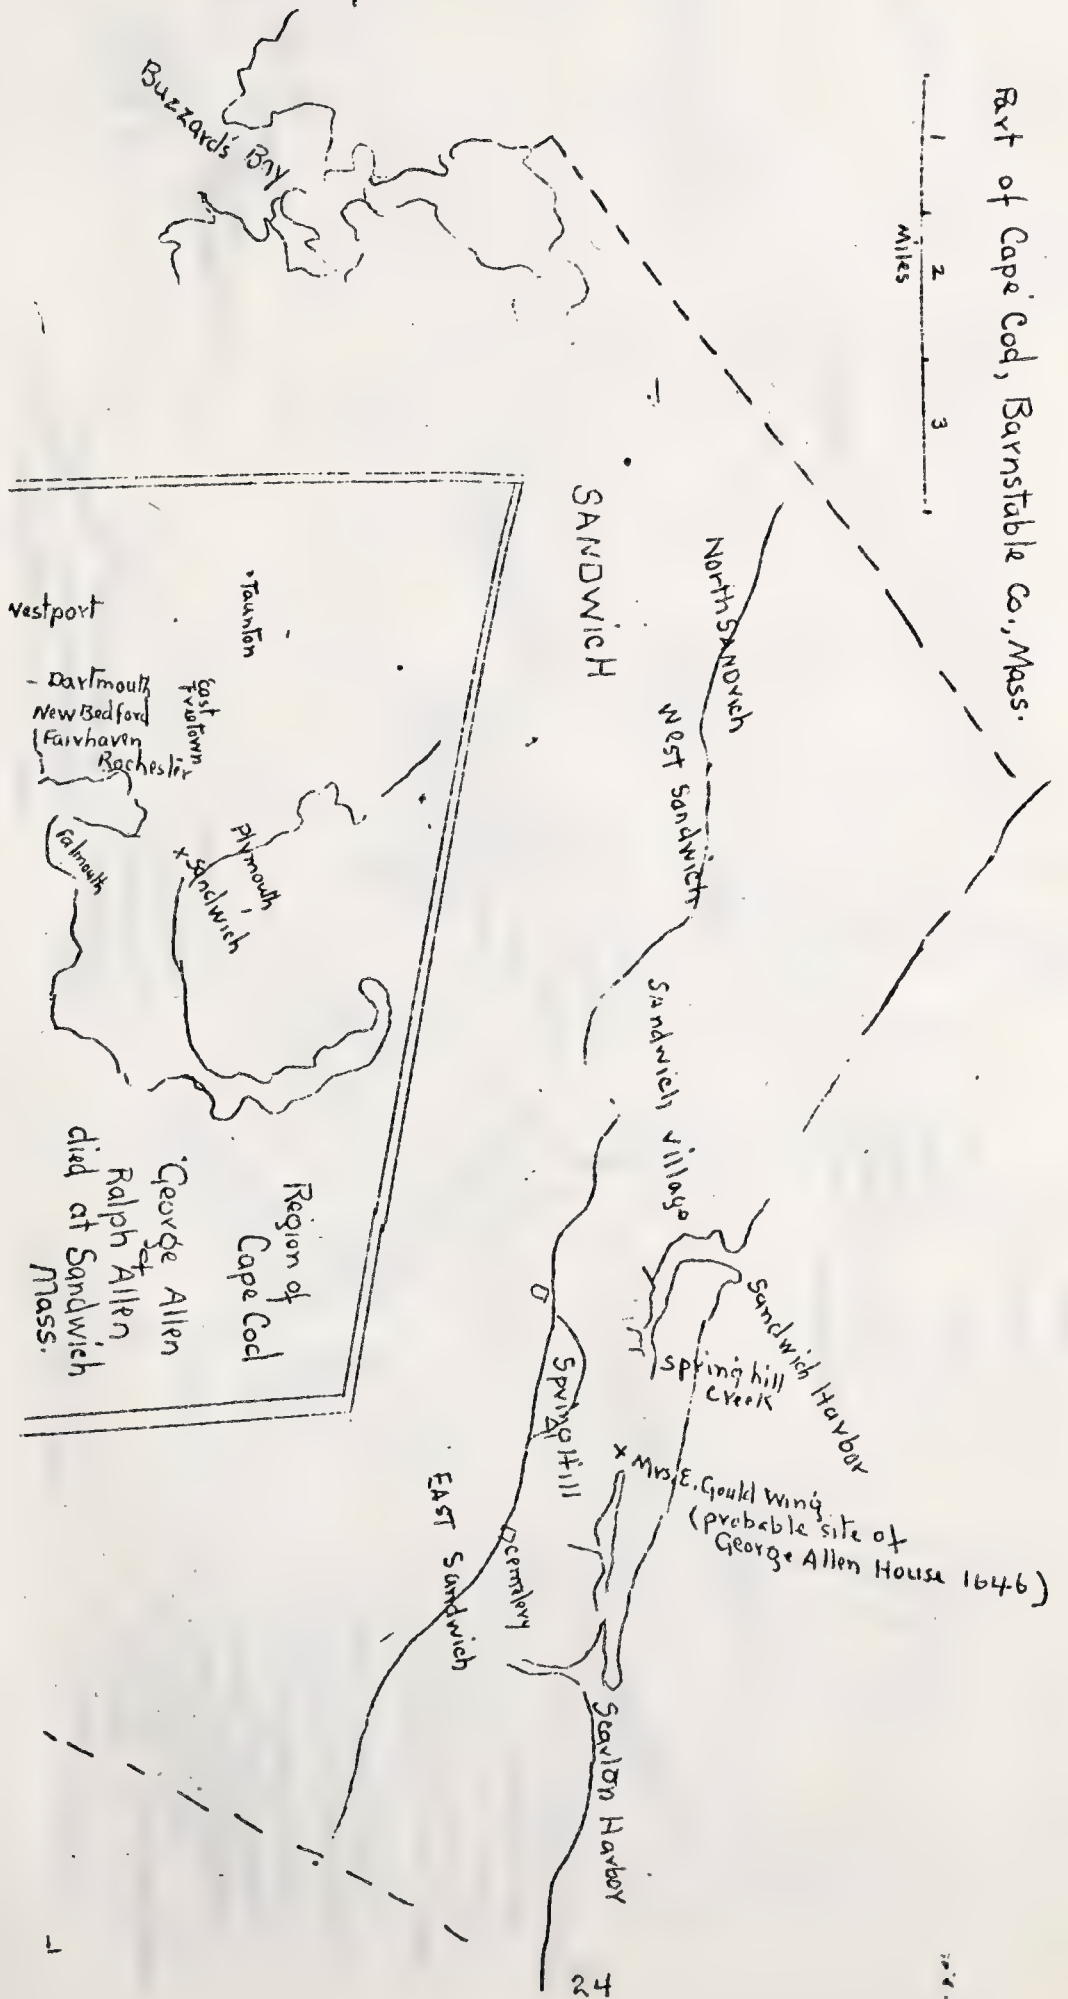 Part of Cape Cod, Barnstable Co., Mass.
1 2 3
Miles
Buzzard's Bay
SANDWICH
North SANDWICH
West Sandwich
Sandwich Village
Sandwich Harbor
Spring hill
Creek
x Mrs. E. Gould Wing
(probable site of
George Allen House 1646)
Spring Hill
cemetery
EAST Sandwich
Scorton Harbor
Taunton
Westport
Dartmouth
New Bedford
Fairhaven
Rochester
East
Freetown
Plymouth
x Sandwich
Falmouth
Region of
Cape Cod
George Allen
&
Ralph Allen
died at Sandwich
Mass.
24